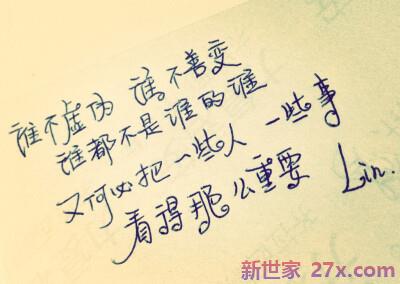 谁不虚伪 谁不善变
谁都不是谁的谁
又何必把一些人 一些事
看得那么重要 Lin.
新世家 27x.com